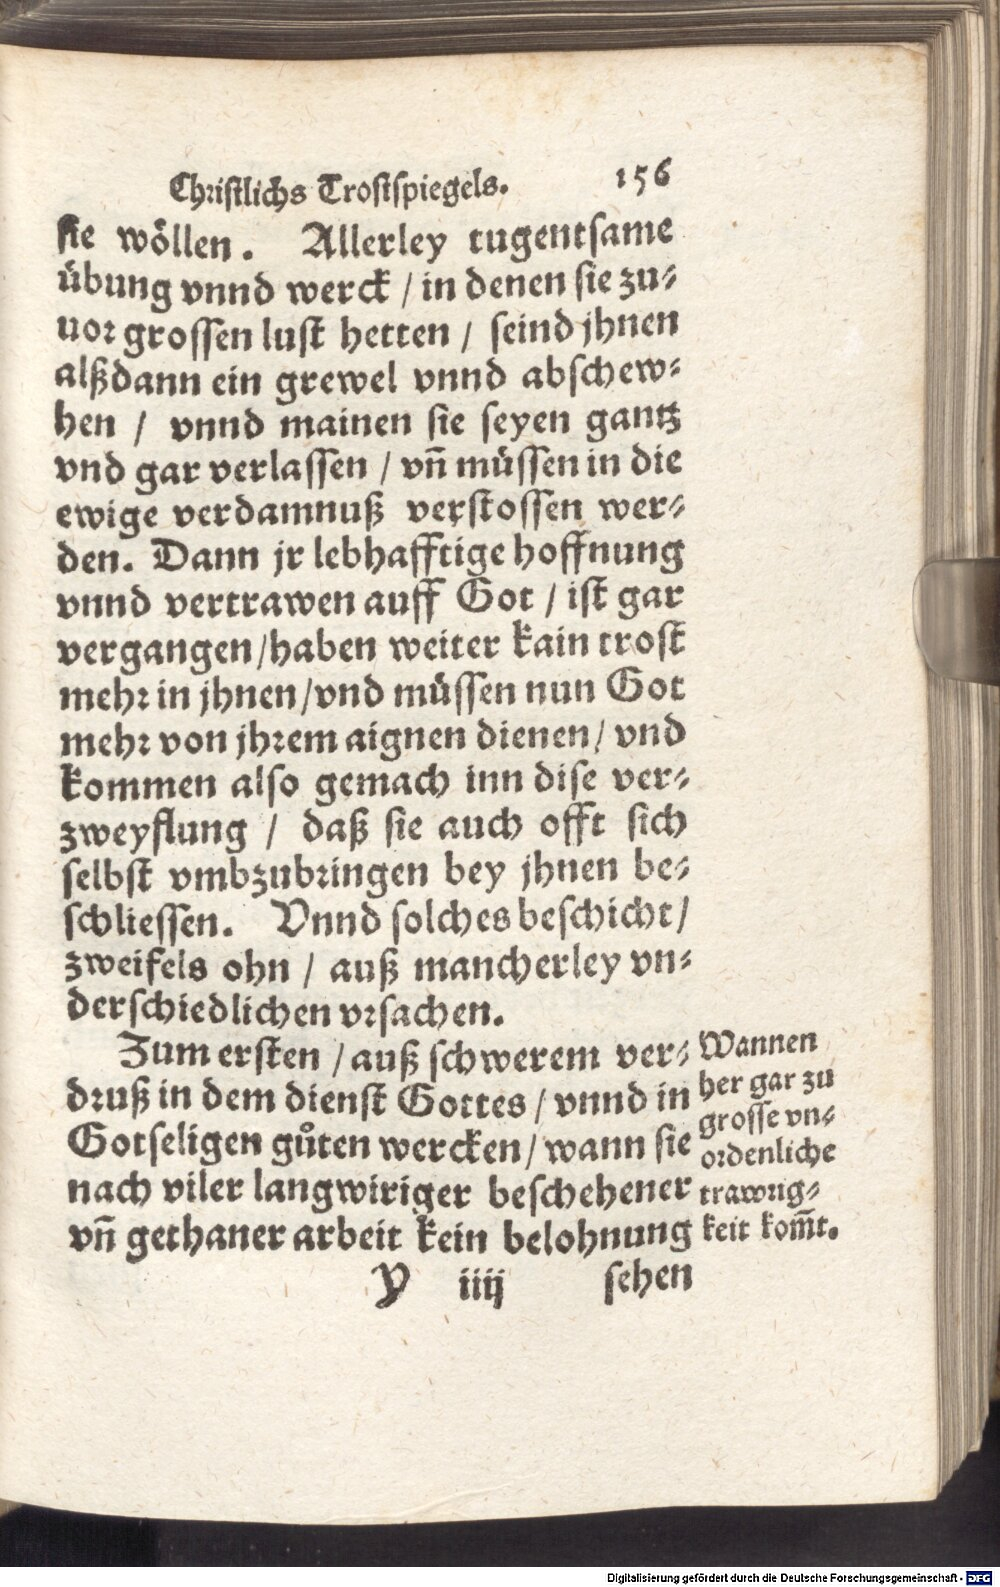 Christlichs Trostspiegels. 156
sie wöllen. Allerley tugentsame
übung vnnd werck / in denen sie zu-
uor grossen lust hetten / seind jhnen
alßdann ein grewel vnnd abschew-
hen / vnnd mainen sie seyen gantz
vnd gar verlassen / vñ müssen in die
ewige verdamnuß verstossen wer-
den. Dann jr lebhafftige hoffnung
vnnd vertrawen auff Got / ist gar
vergangen / haben weiter kain trost
mehr in jhnen / vnd müssen nun Got
mehr von jhrem aignen dienen / vnd
kommen also gemach inn dise ver-
zweyflung / daß sie auch offt sich
selbst vmbzubringen bey jhnen be-
schliessen. Vnnd solches beschicht /
zweifels ohn / auß mancherley vn-
derschiedlichen vrsachen.
Zum ersten / auß schwerem ver-
druß in dem dienst Gottes / vnnd in
Gotseligen gůten wercken / wann sie
nach viler langwiriger beschehener
vñ gethaner arbeit kein belohnung
Wannen
her gar zu
grosse vn-
ordenliche
trawrig-
keit kom̃t.
Y iiij sehen
Digitalisierung gefördert durch die Deutsche Forschungsgemeinschaft - DFG